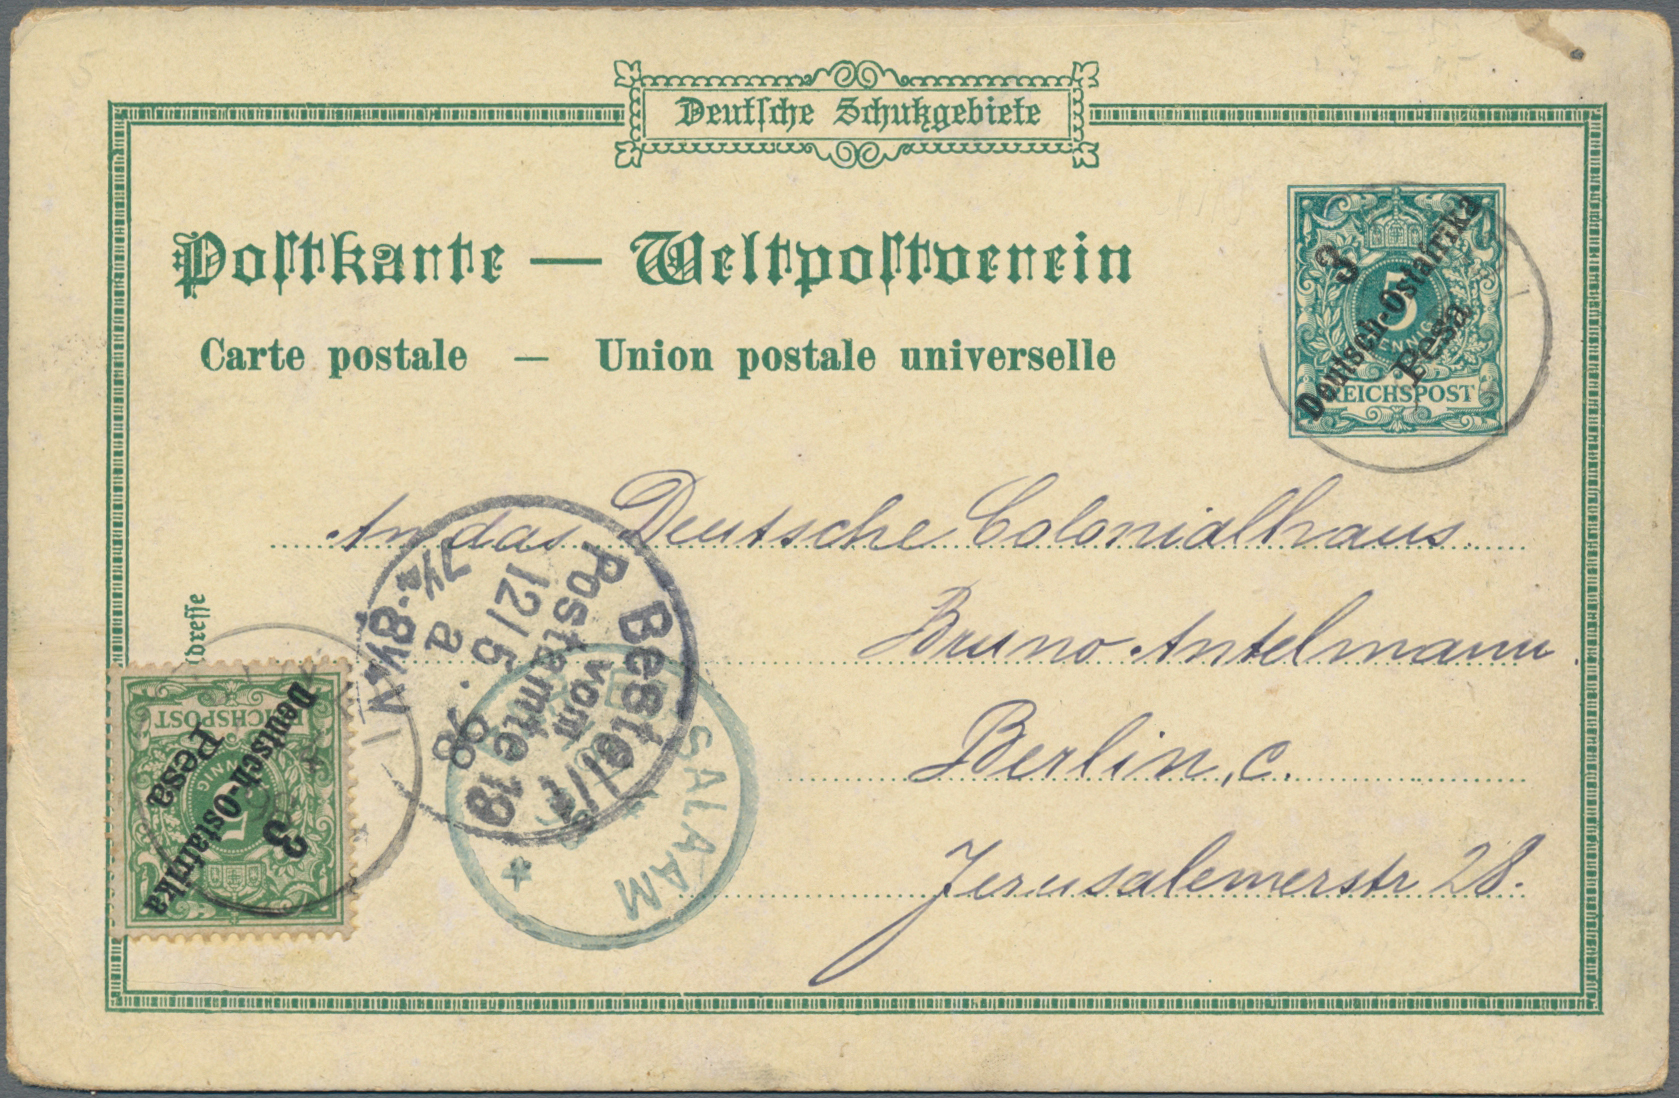 Deutsche Schutzgebiete
Postkarte — Weltpostverein
Carte postale — Union postale universelle
3
5
Deutsch-Ostafrika
Pesa
REICHSPOST
An das Deutsche Colonialhaus
Bruno Antelmann.
Berlin, C.
Jerusalemerstr 28.
Bestellt
vom
Postamte 19
12/5.98
a
7½-8½N
SALAAM
REICHSPOST
PFENNIG
5
Deutsch-Ostafrika
3
Pesa